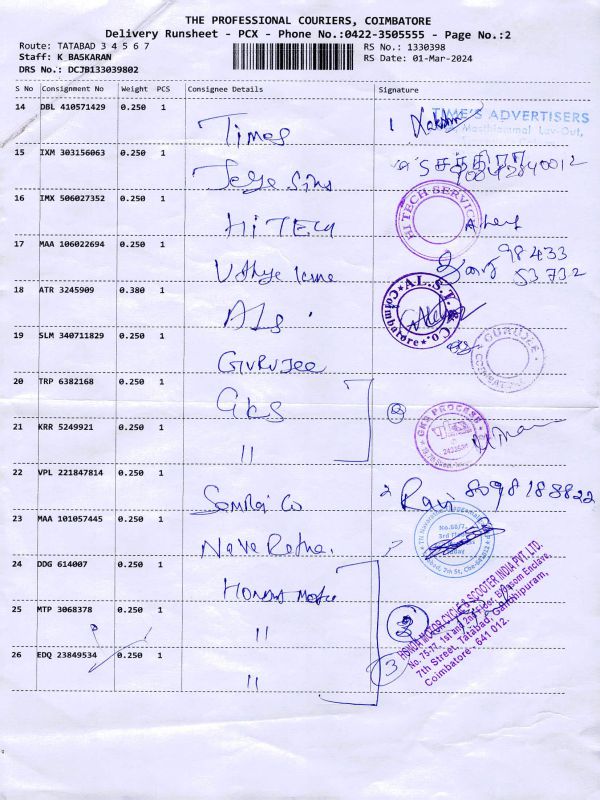 THE PROFESSIONAL COURIERS, COIMBATORE
Delivery Runsheet - PCX - Phone No.:0422-3505555 - Page No.:2
Route: TATABAD 3 4 5 6 7
RS No.: 1330398
Staff: K BASKARAN
RS Date: 01-Mar-2024
DRS No.: DCJB133039802
S No Consignment No Weight PCS Consignee Details Signature
14 DBL 410571429 0.250 1 Times 1
TIME'S ADVERTISERS
15 IXM 303156063 0.250 1
16 IMX 506027352 0.250 1 Hi TECH
HI TECH SERVICE
17 MAA 106022694 0.250 1 98433
53732
18 ATR 3245909 0.380 1 ALS
A.L.S.T. Co. Coimbatore
19 SLM 340711829 0.250 1 GURUJEE
GURUJEE COIMBATORE
20 TRP 6382168 0.250 1 GKS 2
21 KRR 5249921 0.250 1 "
GKS PROCESS
22 VPL 221847814 0.250 1 2 Ravi 8098188822
23 MAA 101057445 0.250 1 Nava Ratna
24 DDG 614007 0.250 1 Honda Motor
25 MTP 3068378 0.250 1 "
26 EDQ 23849534 0.250 1 "
3
HONDA MOTOR CYCLE & SCOOTER INDIA PVT. LTD.
No. 75-77, 1st and 2nd Floor, Blossom Enclave,
7th Street, Tatabad, Gandhipuram,
Coimbatore - 641 012.